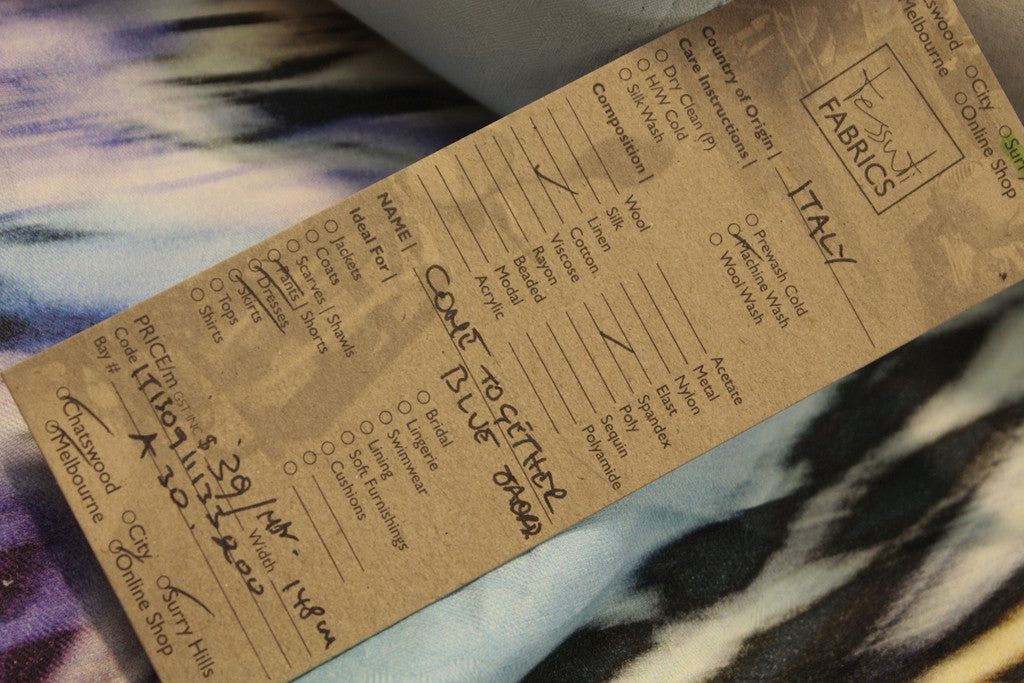 Melbourne
City
Online Shop
Surr
tessuti
FABRICS
Country of Origin | ITALY
Care Instructions |
Dry Clean (P)
H/W Cold
Silk Wash
Prewash Cold
Machine Wash
Wool Wash
Composition |
Wool
Silk
Linen
Cotton
Viscose
Rayon
Beaded
Modal
Acrylic
Acetate
Metal
Nylon
Elast
Spandex
Poly
Sequin
Polyamide
NAME | COME TOGETHER
BLUE
Ideal For |
Jackets
Coats
Scarves | Shawls
Pants | Shorts
Dresses
Skirts
Tops
Shirts
Bridal
Lingerie
Swimwear
Lining
Soft Furnishings
Cushions
PRICE/m GST INC $ 39/ Width 148cm
Code
Bay # A 30
Chatswood
Melbourne
City
Online Shop
Surry Hills